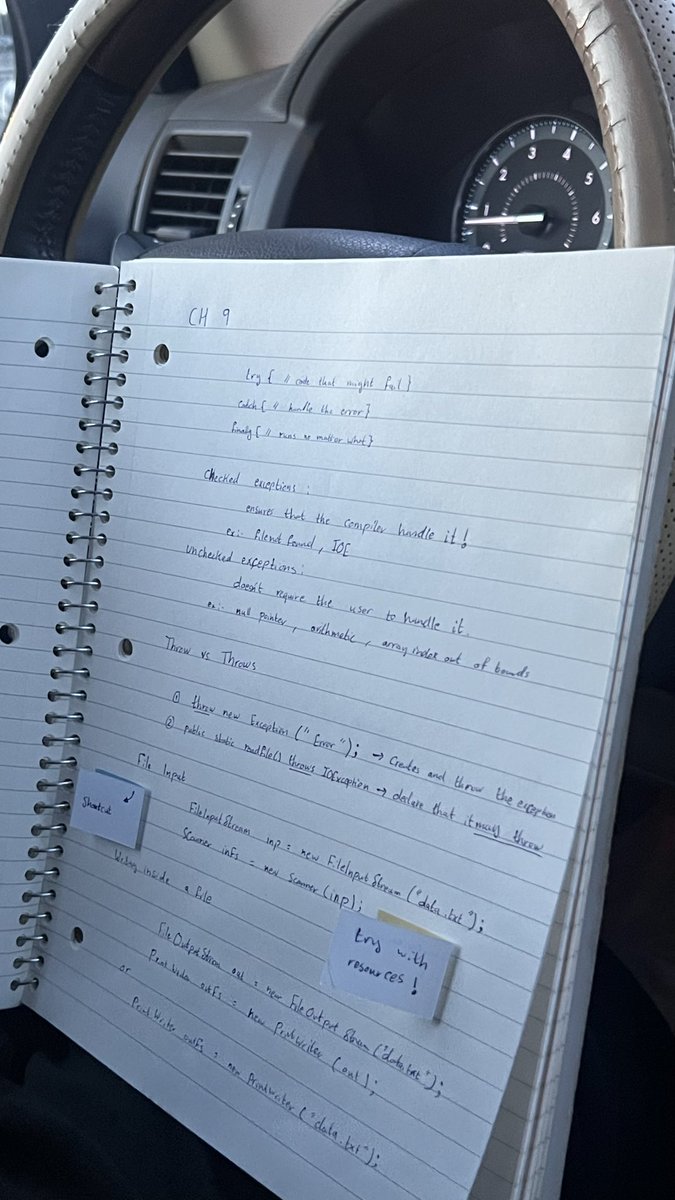 1
2
3
4
5
6
CH 9
try { // code that might fail }
catch { // handle the error }
finally { // runs no matter what }
Checked exceptions :
ensures that the compiler handle it !
ex:- filenot found , IOE
Unchecked exceptions:
doesn't require the user to handle it.
ex:- null pointer , arithmatic , array index out of bounds
Throw vs Throws
① throw new Exception ("Error"); → Creates and throw the exception
② public static readfile() throws IOException → dalare that it may throw
File Input
Shortcut
FileInputStream inp = new FileInputStream ("data.txt");
Scanner inFs = new Scanner (inp);
try with
resources !
Writing inside a file
FileOutputStream out = new FileOutputStream ("data.txt");
PrintWriter outFs = new PrintWriter (out);
or
PrintWriter outFs = new PrintWriter ("data.txt");